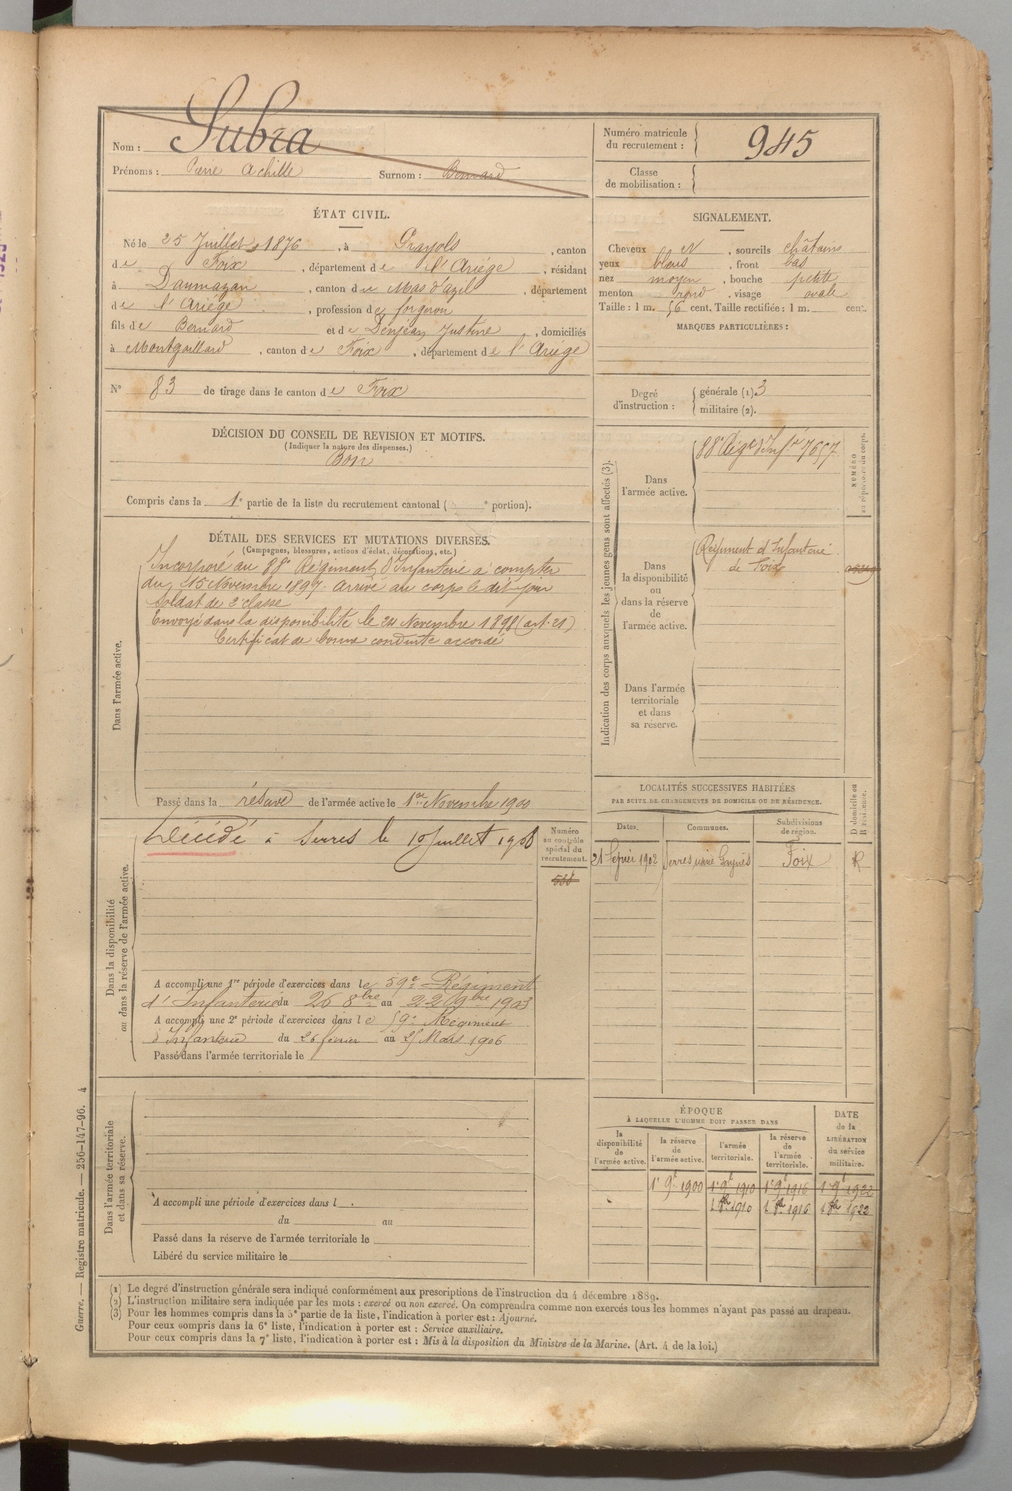 Nom : Subra
Prénoms : Pierre Achille Surnom : Bernard
Numéro matricule du recrutement : 945
Classe de mobilisation :
ÉTAT CIVIL.
Né le 25 Juillet 1876, à Grayols, canton
de Foix, département de l'Ariége, résidant
à Daumazan, canton de Mas d'azil, département
de l'Ariége, profession de forgeron
fils de Bernard et de Denjean Justine, domiciliés
à Montgaillard, canton de Foix, département de l'Ariége
N° 83 de tirage dans le canton de Foix
SIGNALEMENT.
Cheveux et sourcils châtains
yeux bleus, front bas
nez moyen, bouche petite
menton rond, visage ovale
Taille : 1 m. 56 cent. Taille rectifiée : 1 m. cent.
MARQUES PARTICULIÈRES :
Degré d'instruction : générale (1) 3
militaire (2).
DÉCISION DU CONSEIL DE REVISION ET MOTIFS.
(Indiquer la nature des dispenses.)
Bon
Compris dans la 1e partie de la liste du recrutement cantonal ( e portion).
DÉTAIL DES SERVICES ET MUTATIONS DIVERSES.
(Campagnes, blessures, actions d'éclat, décorations, etc.)
Dans l'armée active.
Incorporé au 88e Régiment d'Infanterie à compter
du 15 Novembre 1897 arrivé au corps le dit jour
Soldat de 2e classe
Envoyé dans la disponibilité le 24 Novembre 1898 (art. 21)
Certificat de bonne conduite accordé
Passé dans la réserve de l'armée active le 1er Novembre 1900
Indication des corps auxquels les jeunes gens sont affectés (3).
Dans l'armée active.
88e Régt d'Infie 7657
NUMÉRO au répertoire du corps.
Dans la disponibilité ou dans la réserve de l'armée active.
Régiment d'Infanterie
de Foix
Dans l'armée territoriale et dans sa réserve.
Dans la disponibilité ou dans la réserve de l'armée active.
Décédé à Serres le 10 Juillet 1908
Numéro au contrôle spécial du recrutement.
A accompli une 1re période d'exercices dans le 59e Régiment
d'Infanterie du 26 8bre au 22 9bre 1903
A accompli une 2e période d'exercices dans le 59e Régiment
d'Infanterie du 26 février au 25 Mars 1906
Passé dans l'armée territoriale le
LOCALITÉS SUCCESSIVES HABITÉES
PAR SUITE DE CHANGEMENTS DE DOMICILE OU DE RÉSIDENCE.
Dates. Communes. Subdivisions de région. D domicile ou R résidence.
21 février 1902 Serres Foix R
Dans l'armée territoriale et dans sa réserve.
A accompli une période d'exercices dans l
du au
Passé dans la réserve de l'armée territoriale le
Libéré du service militaire le
ÉPOQUE
À LAQUELLE L'HOMME DOIT PASSER DANS
la disponibilité de l'armée active. la réserve de l'armée active. l'armée territoriale. la réserve de l'armée territoriale. DATE de la LIBÉRATION du service militaire.
1er 9bre 1900 1er 9bre 1910 1er 9bre 1916 1er 9bre 1922
1 8bre 1910 1 8bre 1916 1 8bre 1922
(1) Le degré d'instruction générale sera indiqué conformément aux prescriptions de l'instruction du 4 décembre 1889.
(2) L'instruction militaire sera indiquée par les mots : exercé ou non exercé. On comprendra comme non exercés tous les hommes n'ayant pas passé au drapeau.
(3) Pour les hommes compris dans la 5e partie de la liste, l'indication à porter est : Ajourné.
Pour ceux compris dans la 6e liste, l'indication à porter est : Service auxiliaire.
Pour ceux compris dans la 7e liste, l'indication à porter est : Mis à la disposition du Ministre de la Marine. (Art. 4 de la loi.)
Guerre. — Registre matricule. — 256-147-96. 4